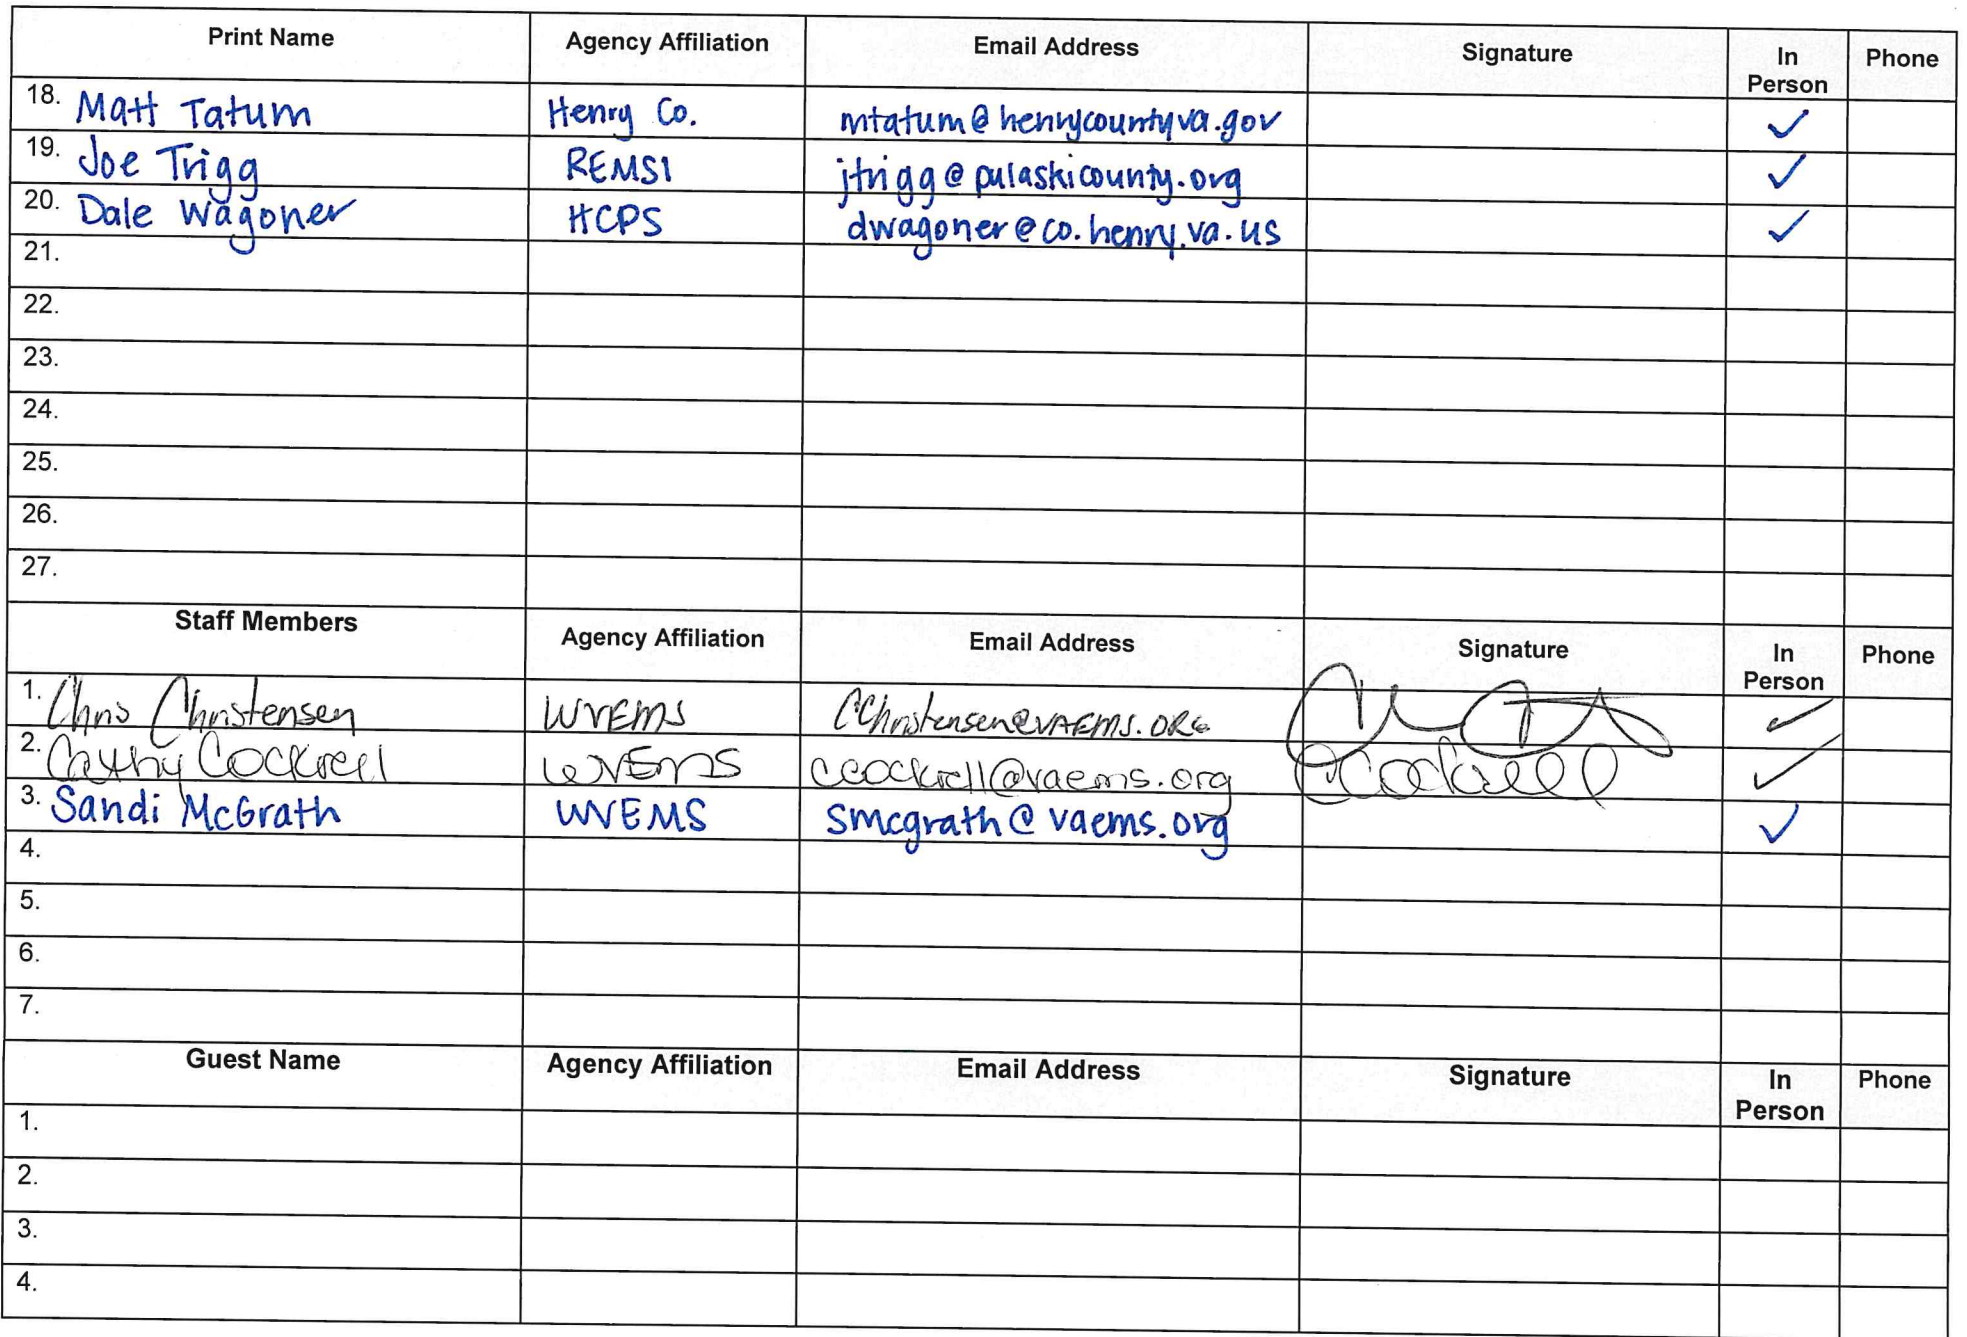 Print Name Agency Affiliation Email Address Signature In Person Phone
18. Matt Tatum Henry Co. mtatum@henrycountyva.gov ✓
19. Joe Trigg REMSI jtrigg@pulaskicounty.org ✓
20. Dale Wagoner HCPS dwagoner@co.henry.va.us ✓
21.
22.
23.
24.
25.
26.
27.
Staff Members Agency Affiliation Email Address Signature In Person Phone
1. Chris Christensen WVEMS CChristensen@VAEMS.ORG ✓
2. Cathy Cockrell WVEMS ccockrell@vaems.org CCockrell ✓
3. Sandi McGrath WVEMS smcgrath@vaems.org ✓
4.
5.
6.
7.
Guest Name Agency Affiliation Email Address Signature In Person Phone
1.
2.
3.
4.